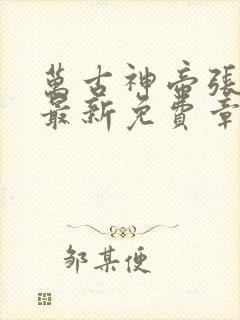 萬古神帝張
最新免費章
邹某便